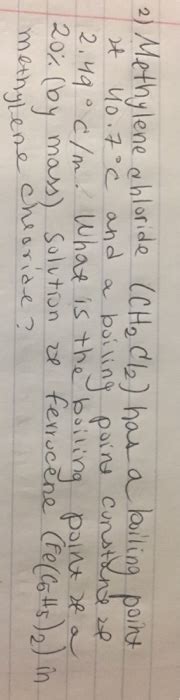 2) Methylene chloride (CH2Cl2) has a boiling point
of 40.7°C and a boiling point constant of
2.49°C/m. What is the boiling point of a
20% (by mass) solution of ferrocene (Fe(C5H5)2) in
methylene cheoride?